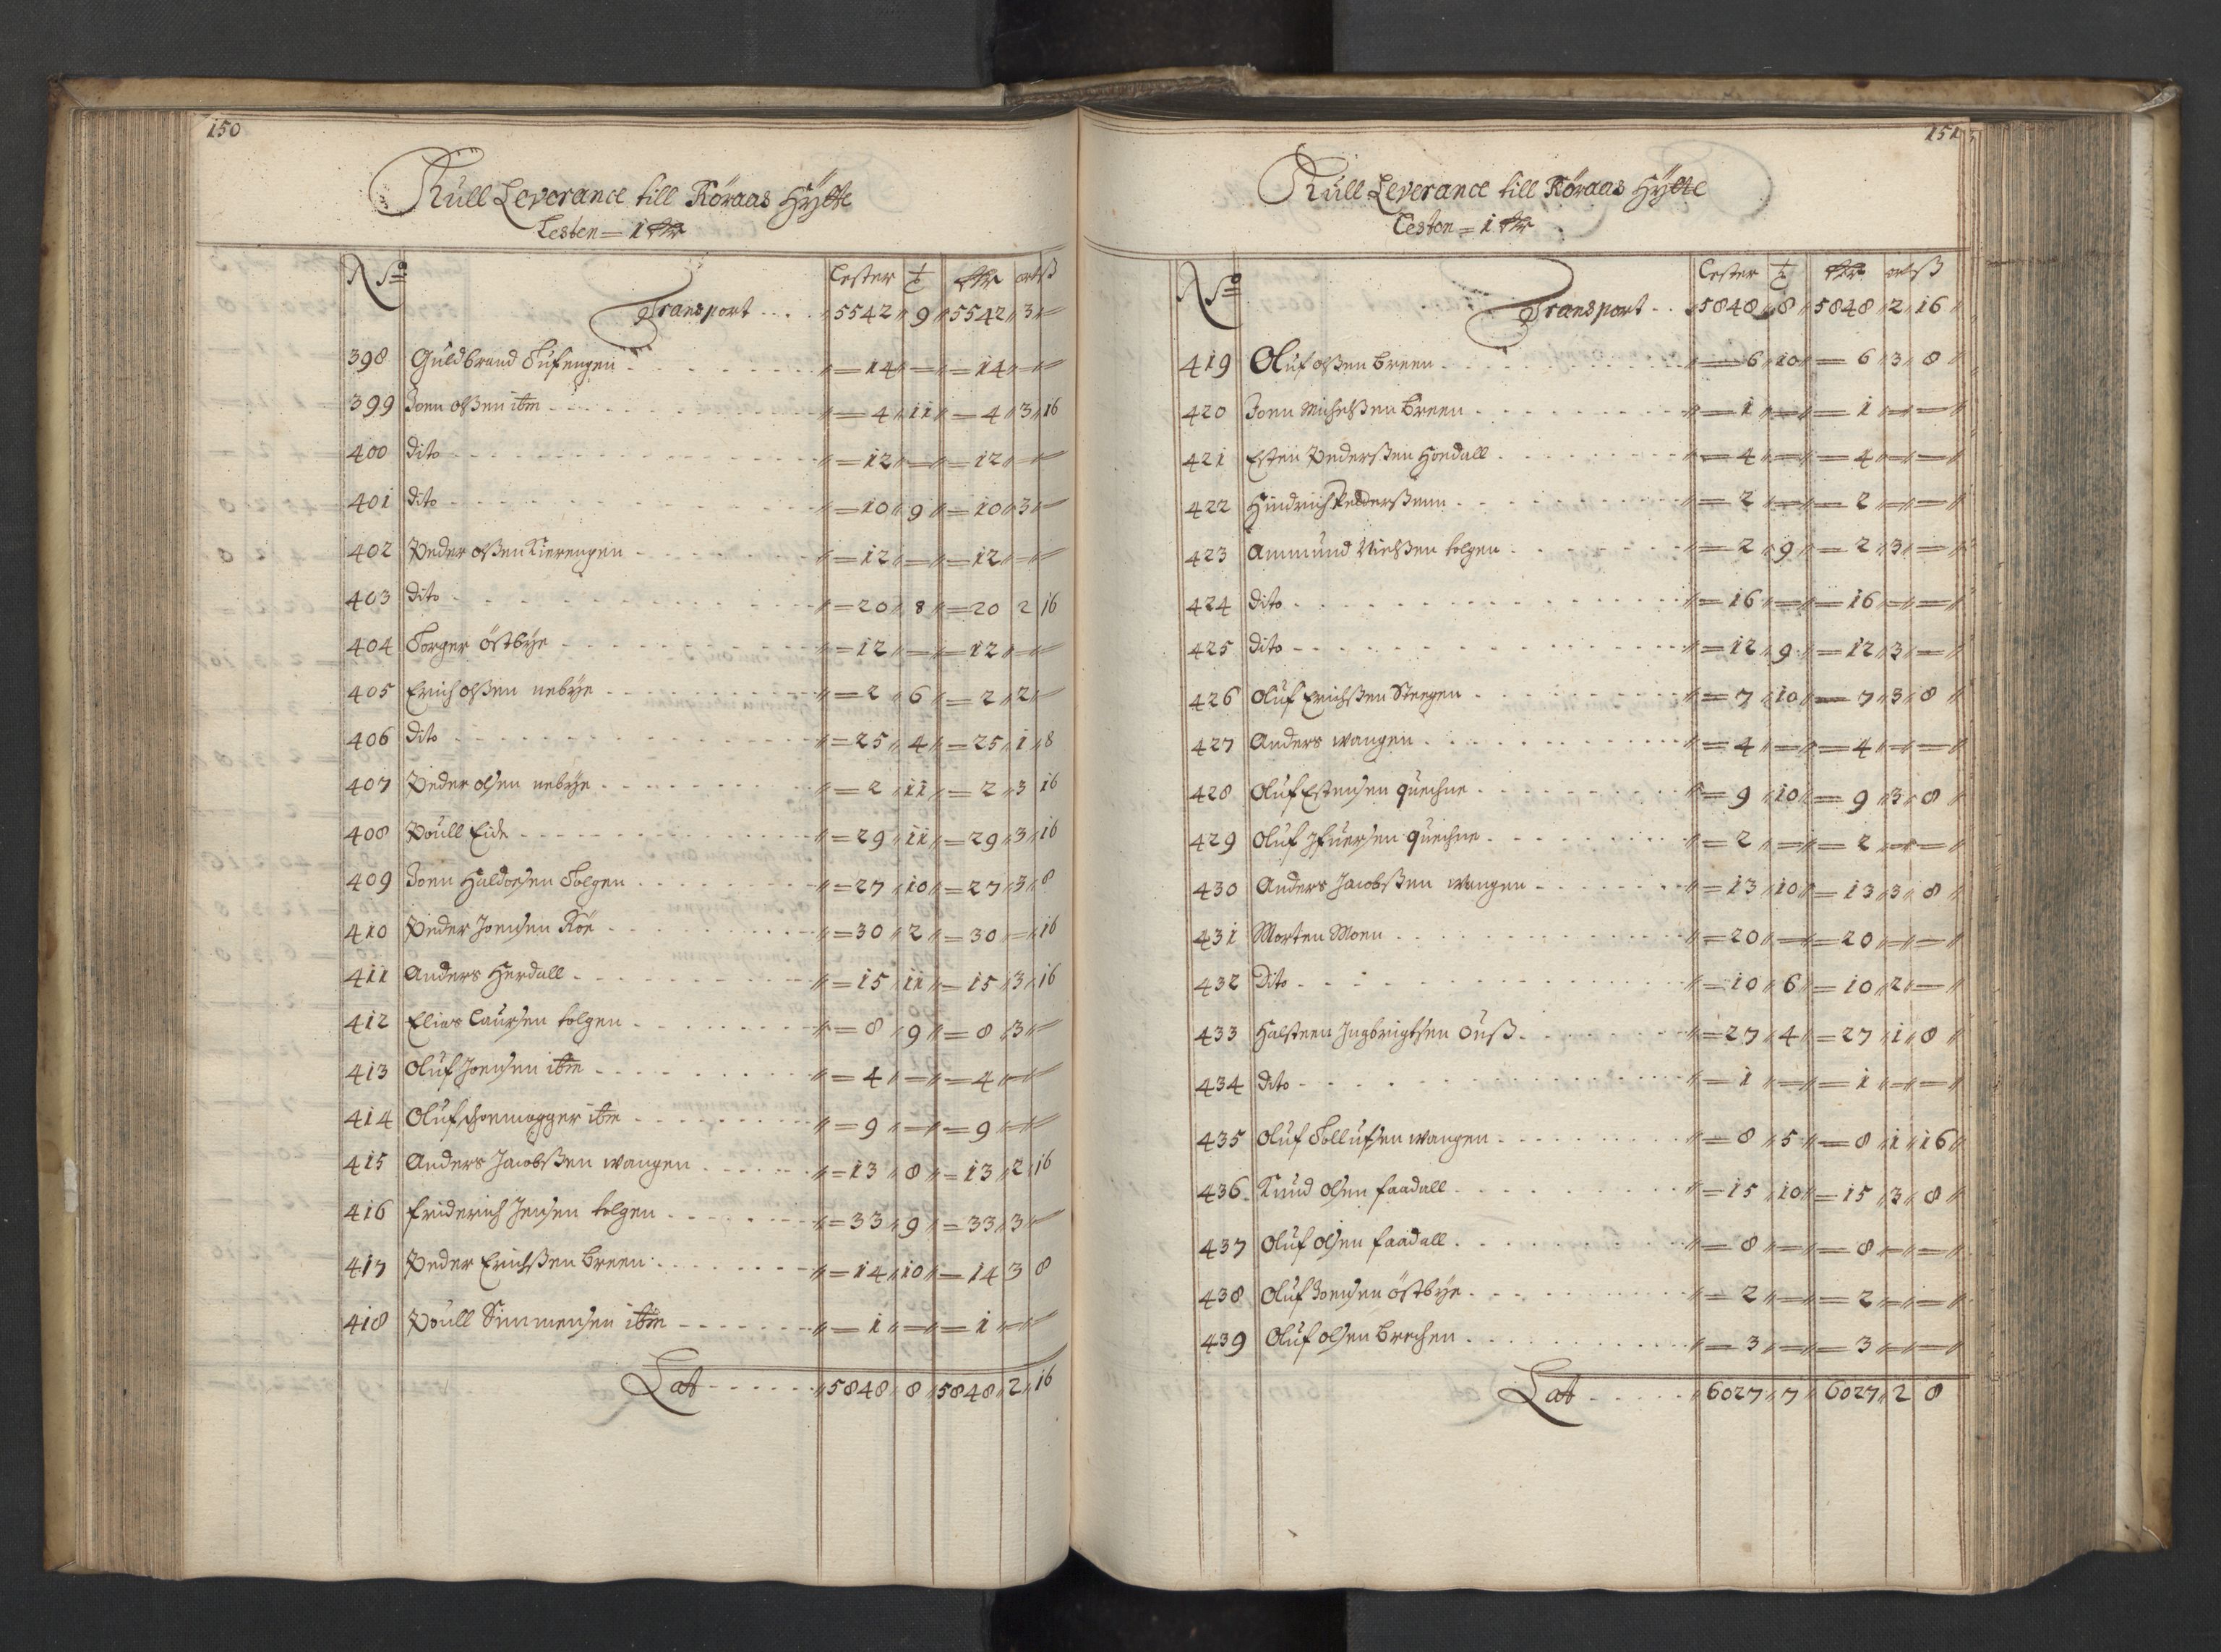 150
Kull Leverance till Röraas Hytte
Lesten = 1 Rdr
No Lester t Rdr ort ß
Transport .... 5542 9 5542 3 =
398 Guldbrand Tufengen = 14 = = 14 = =
399 Joen olßen ibm = 4 11 = 4 3 16
400 dito = 12 = = 12 = =
401 dito = 10 9 = 10 3 =
402 Peder olßen Kierengen = 12 = = 12 = =
403 dito = 20 8 = 20 2 16
404 Torger östbye = 12 = = 12 = =
405 Erich olßen nebye = 2 6 = 2 2 =
406 dito = 25 4 = 25 1 8
407 Peder olsen nebye = 2 11 = 2 3 16
408 Poull Eide = 29 11 = 29 3 16
409 Joen Haldorsen Tolgen = 27 10 = 27 3 8
410 Peder Joensen Röe = 30 2 = 30 = 16
411 Anders Herdall = 15 11 = 15 3 16
412 Elias Laursen tolgen = 8 9 = 8 3 =
413 Oluf Joensen ibm = 4 = = 4 = =
414 Oluf schoemagger ibm = 9 = = 9 = =
415 Anders Jacobßen wangen = 13 8 = 13 2 16
416 friderich Jensen tolgen = 33 9 = 33 3 =
417 Peder Erichßen Breen = 14 10 = 14 3 8
418 Poull Simmensen ibm = 1 = = 1 = =
Lat 5848 8 5848 2 16
151
Kull Leverance till Röraas Hytte
Lesten = 1 Rdr
No Lester t Rdr ort ß
Transport .. 5848 8 5848 2 16
419 Oluf olßen breen = 6 10 = 6 3 8
420 Joen Michelßen Breen = 1 = = 1 = =
421 Esten Pederßen Hoedall = 4 = = 4 = =
422 Hindrich Pedderßenn = 2 = = 2 = =
423 Ammund Nielßen tolgen = 2 9 = 2 3 =
424 dito = 16 = = 16 = =
425 dito = 12 9 = 12 3 =
426 Oluf Erichßen Steegen = 7 10 = 7 3 8
427 Anders wangen = 4 = = 4 = =
428 Oluf Estensen quechne = 9 10 = 9 3 8
429 Oluf Ifuersen quechne = 2 = = 2 = =
430 Anders Jacobßen wangen = 13 10 = 13 3 8
431 Morten Moen = 20 = = 20 = =
432 Dito = 10 6 = 10 2 =
433 Halsteen Ingbrigtsen ouß = 27 4 = 27 1 8
434 dito = 1 = = 1 = =
435 Oluf Tollufsen wangen = 8 5 = 8 1 16
436 Knud olsen faadall = 15 10 = 15 3 8
437 Oluf olsen faadall = 8 = = 8 = =
438 Oluf Joensen östbye = 2 = = 2 = =
439 Oluf olsen Brechen = 3 = = 3 = =
Lat 6027 7 6027 2 8